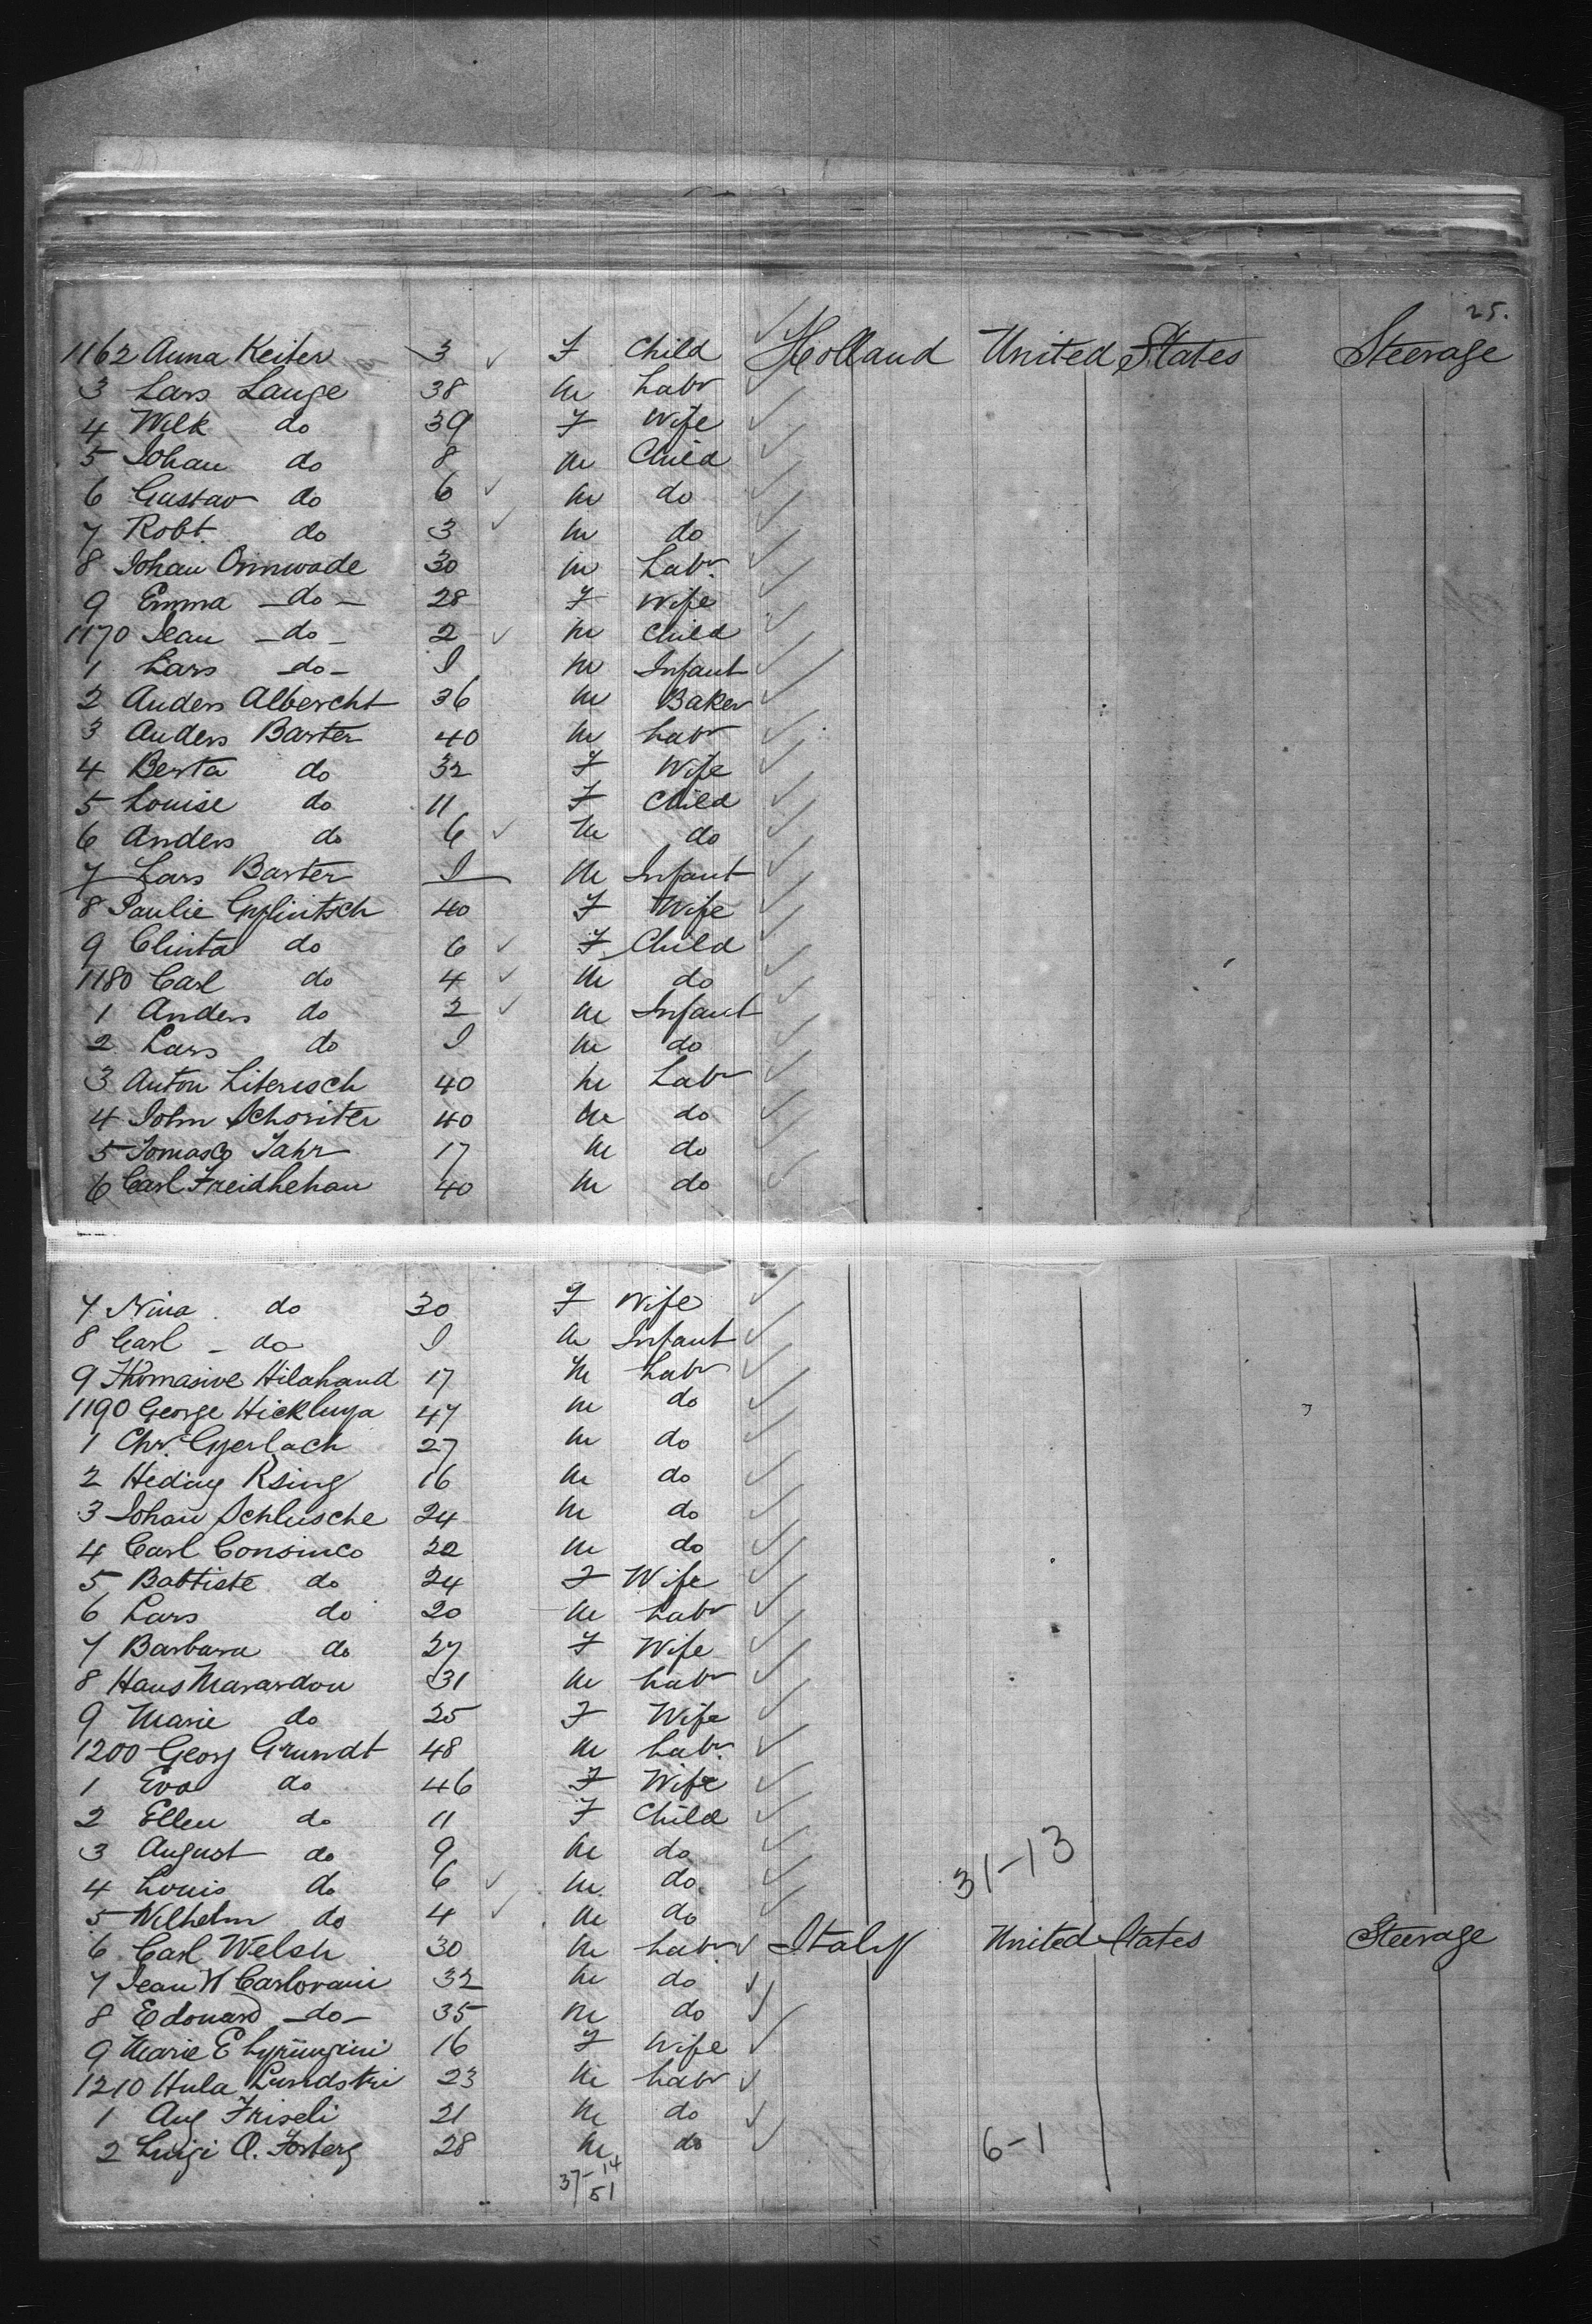 25.
1162 Anna Keiter 3 F Child Holland United States Steerage
3 Lars Lange 38 M Labr
4 Wilk do 39 F Wife
5 Johan do 8 M Child
6 Gustav do 6 M do
7 Robt do 3 M do
8 Johan Onnwade 30 M Labr.
9 Emma -do- 28 F Wife
1170 Jean -do- 2 M Child
1 Lars -do- I M Infant
2 Anders Albercht 36 M Baker
3 Anders Barter 40 M Labr
4 Berta do 32 F Wife
5 Louise do 11 F Child
6 Anders do 6 M do
7 Lars Barter I M Infant
8 Paulie 40 F Wife
9 Clinta do 6 F Child
1180 Carl do 4 M do
1 Anders do 2 M Infant
2 Lars do I M do
3 Anton Literisch 40 M Labr
4 John Schoriter 40 M do
5 Jahr 17 M do
6 Carl Freidhehan 40 M do
7 Nina do 30 F Wife
8 Carl - do I M Infant
9 Thomasive Hilahand 17 M Labr
1190 George Hickluya 47 M do
1 Chr. Gyerlach 27 M do
2 Heding Rsing 16 M do
3 Johan Schlusche 24 M do
4 Carl Consinco 22 M do
5 Battiste do 24 F Wife
6 Lars do 20 M Labr
7 Barbara do 27 F Wife
8 Hans Marardon 31 M Labr
9 Marie do 25 F Wife
1200 Georg Grundt 48 M Labr.
1 Eva do 46 F Wife
2 Ellen do 11 F Child
3 August do 9 M do
4 Louis do 6 M do
31-13
5 Wilhelm do 4 M do
6 Carl Welsh 30 M Labr Italy United States Steerage
7 Jean W Carlovani 32 M do
8 Edouard -do- 35 M do
9 Marie E 16 F Wife
1210 Hula Lundstri 23 M Labr
1 Aug Friseli 21 M do
2 Luigi O. Forberg 28 M do 6-1
37-14
51